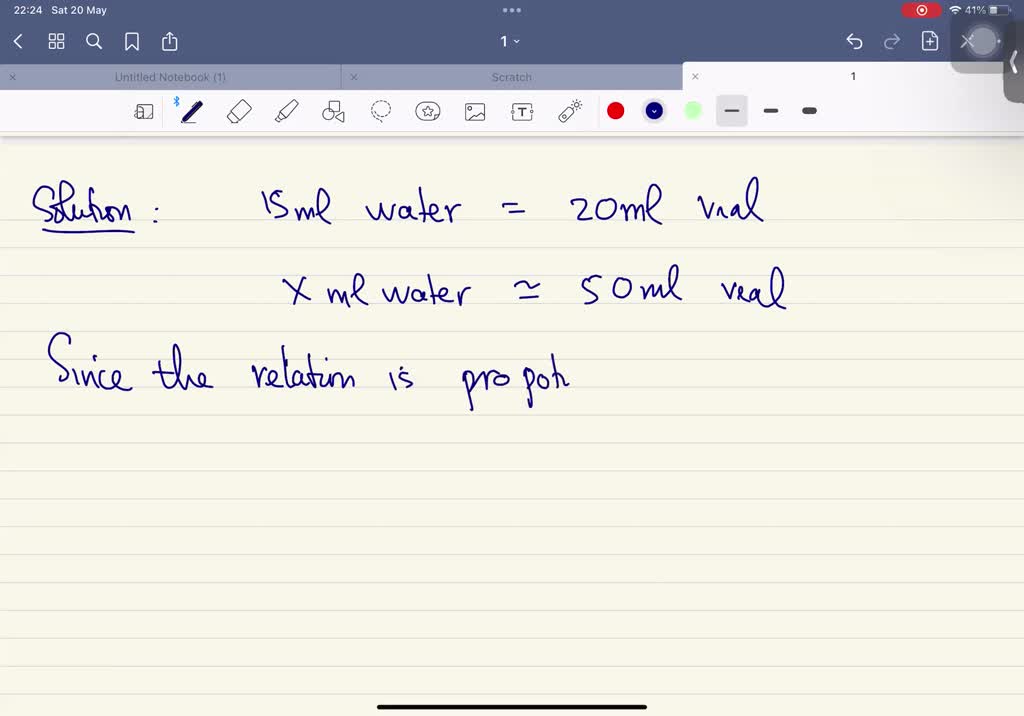 22:24 Sat 20 May
41%
1
Untitled Notebook (1)
Scratch
1
T
Solution : 15ml water = 20ml vial
x ml water ≃ 50ml vial
Since the relation is propoti